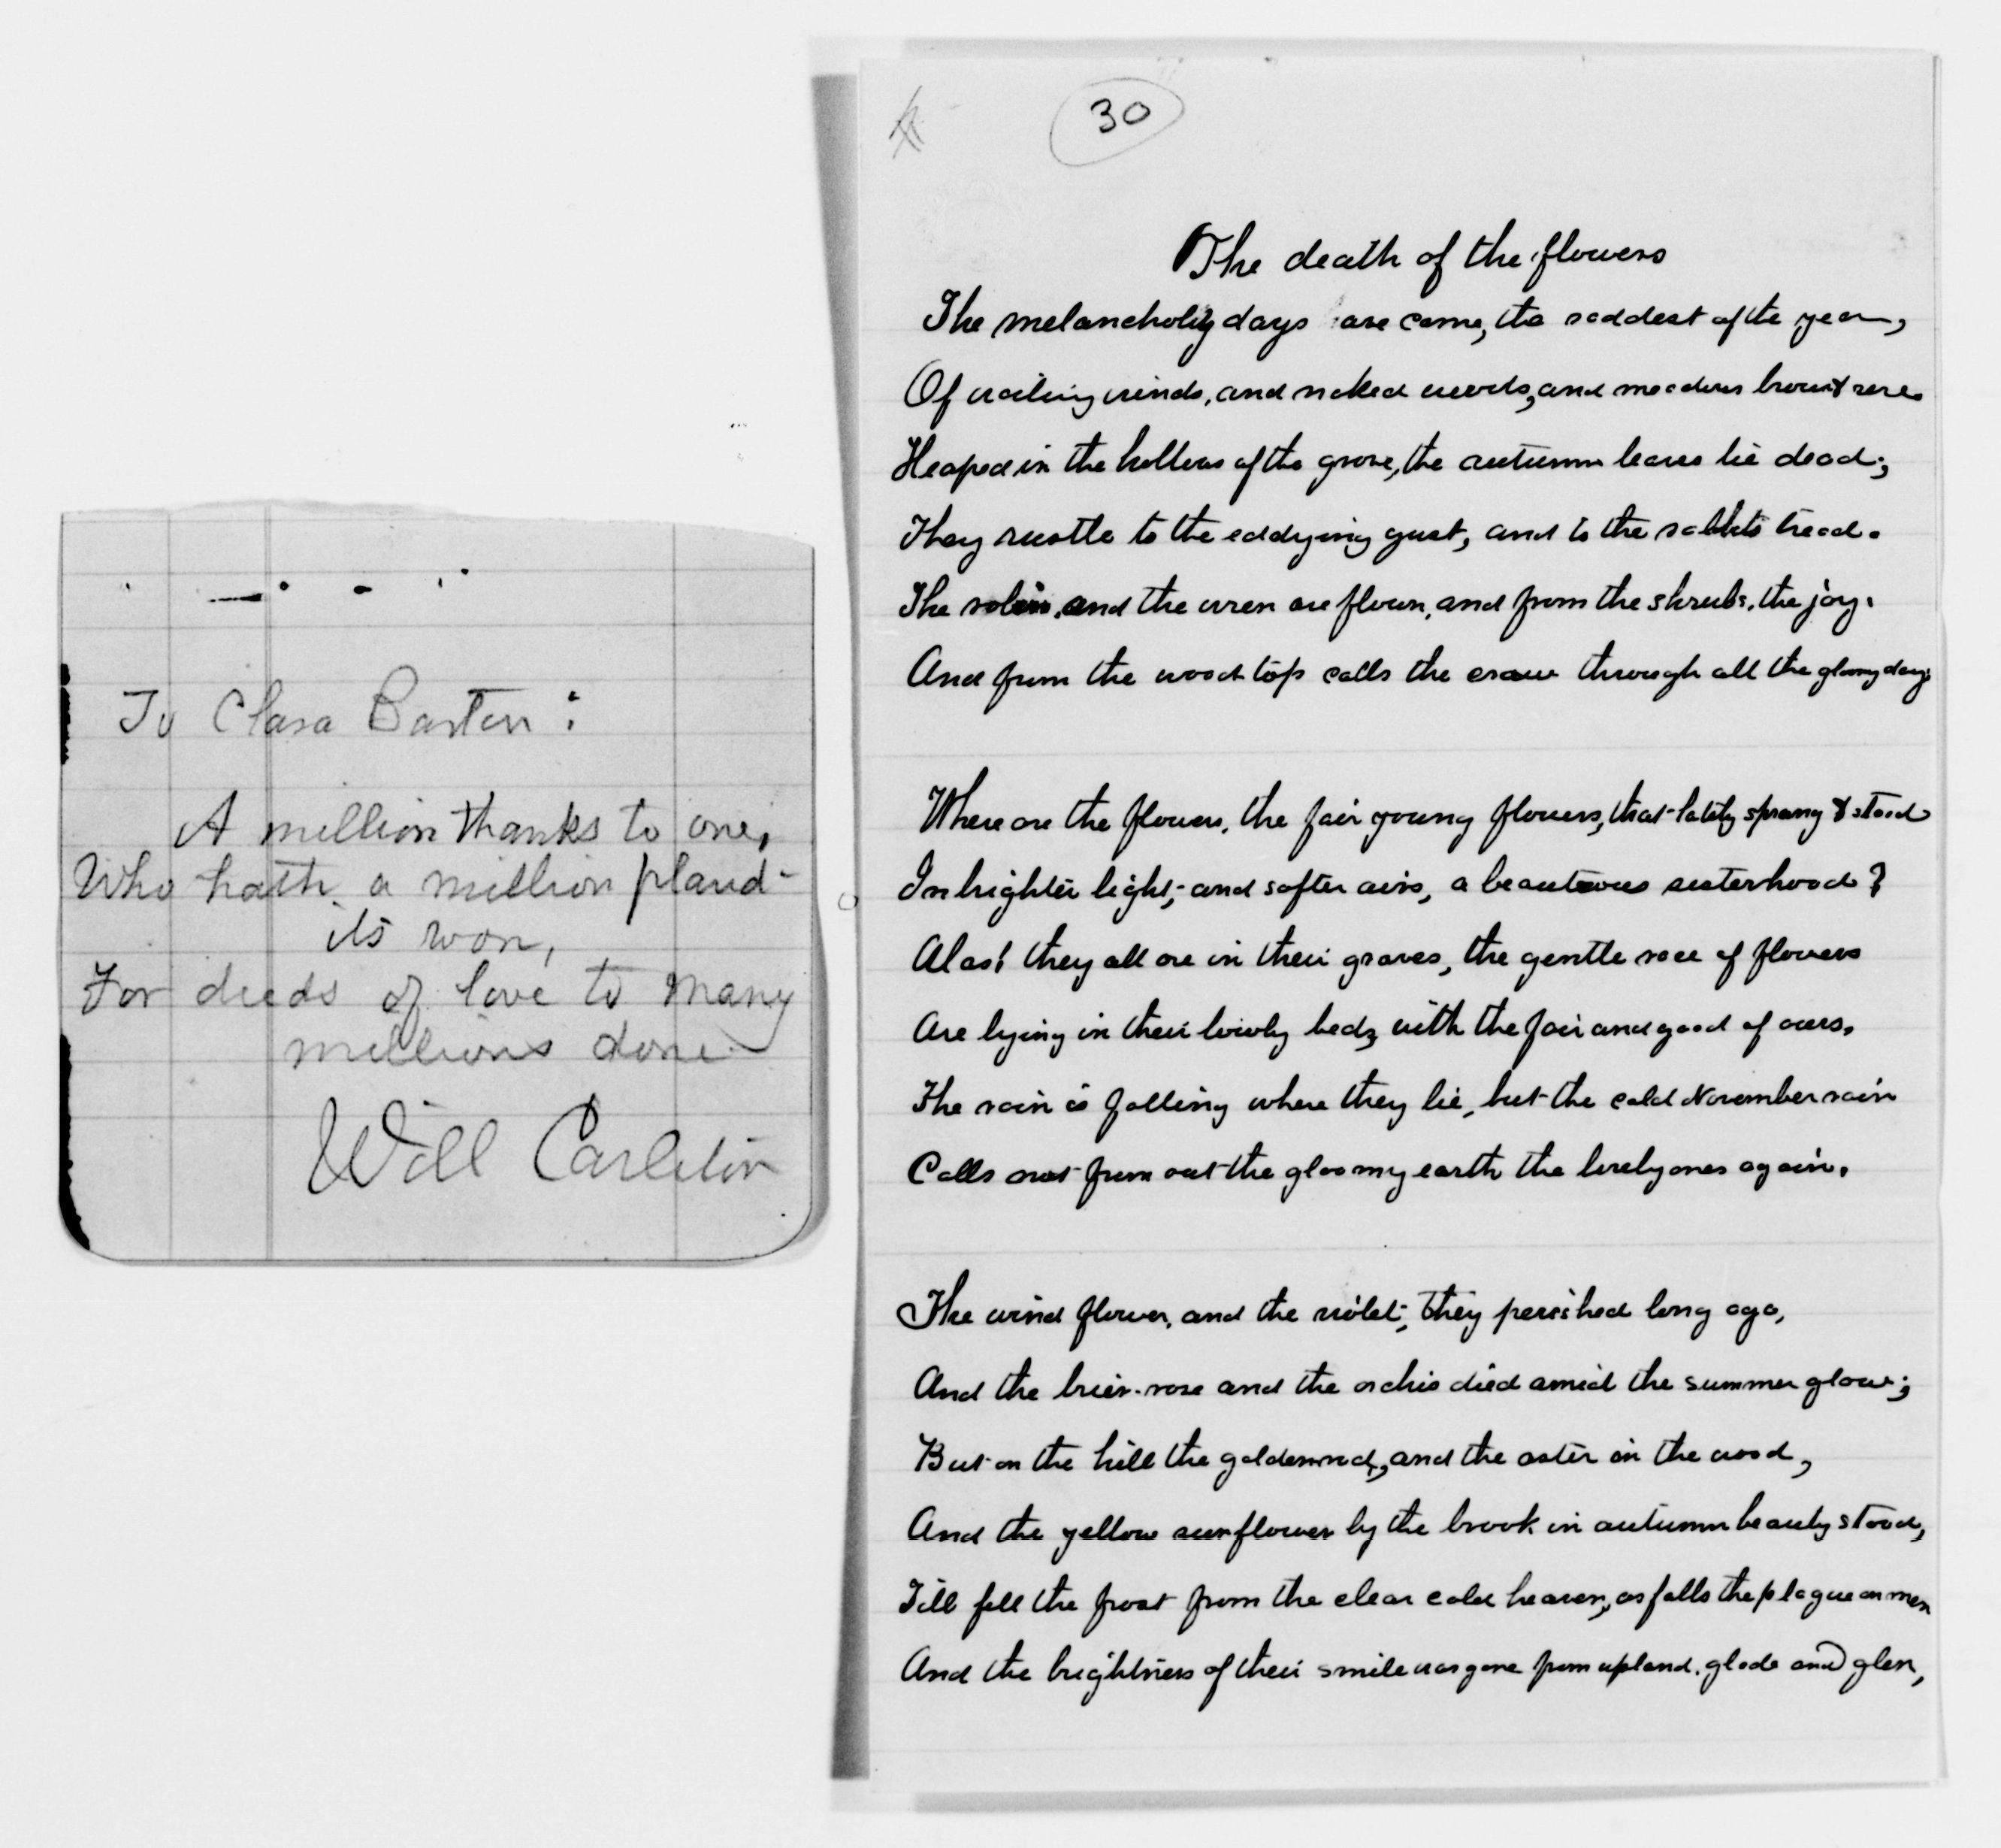 To Clara Barton:
A million thanks to one,
Who hath a million plaud-
its won,
For deeds of love to many
millions done
Will Carleton
30
The death of the flowers
The melancholy days are come, the saddest of the year,
Of wailing winds, and naked woods, and meadows brown & sere.
Heaped in the hollows of the grove, the autumn leaves lie dead;
They rustle to the eddying gust, and to the rabbits tread.
The robin, and the wren are flown, and from the shrubs, the jay.
And from the wood top calls the crow through all the gloomy day.
Where are the flowers, the fair young flowers, that lately sprang & stood
In brighter light, and softer airs, a beauteous sisterhood?
Alas! they all are in their graves, the gentle race of flowers
Are lying in their lowly beds, with the fair and good of ours.
The rain is falling where they lie, but the cold November rain
Calls not from out the gloomy earth the lovely ones again.
The wind flower, and the violet, they perished long ago,
And the brier-rose and the orchis died amid the summer glow;
But on the hill the goldenrod, and the aster in the wood,
And the yellow sunflower by the brook in autumn beauty stood,
Till fell the frost from the clear cold heaven, as falls the plague on men
And the brightness of their smile was gone from upland, glade and glen,